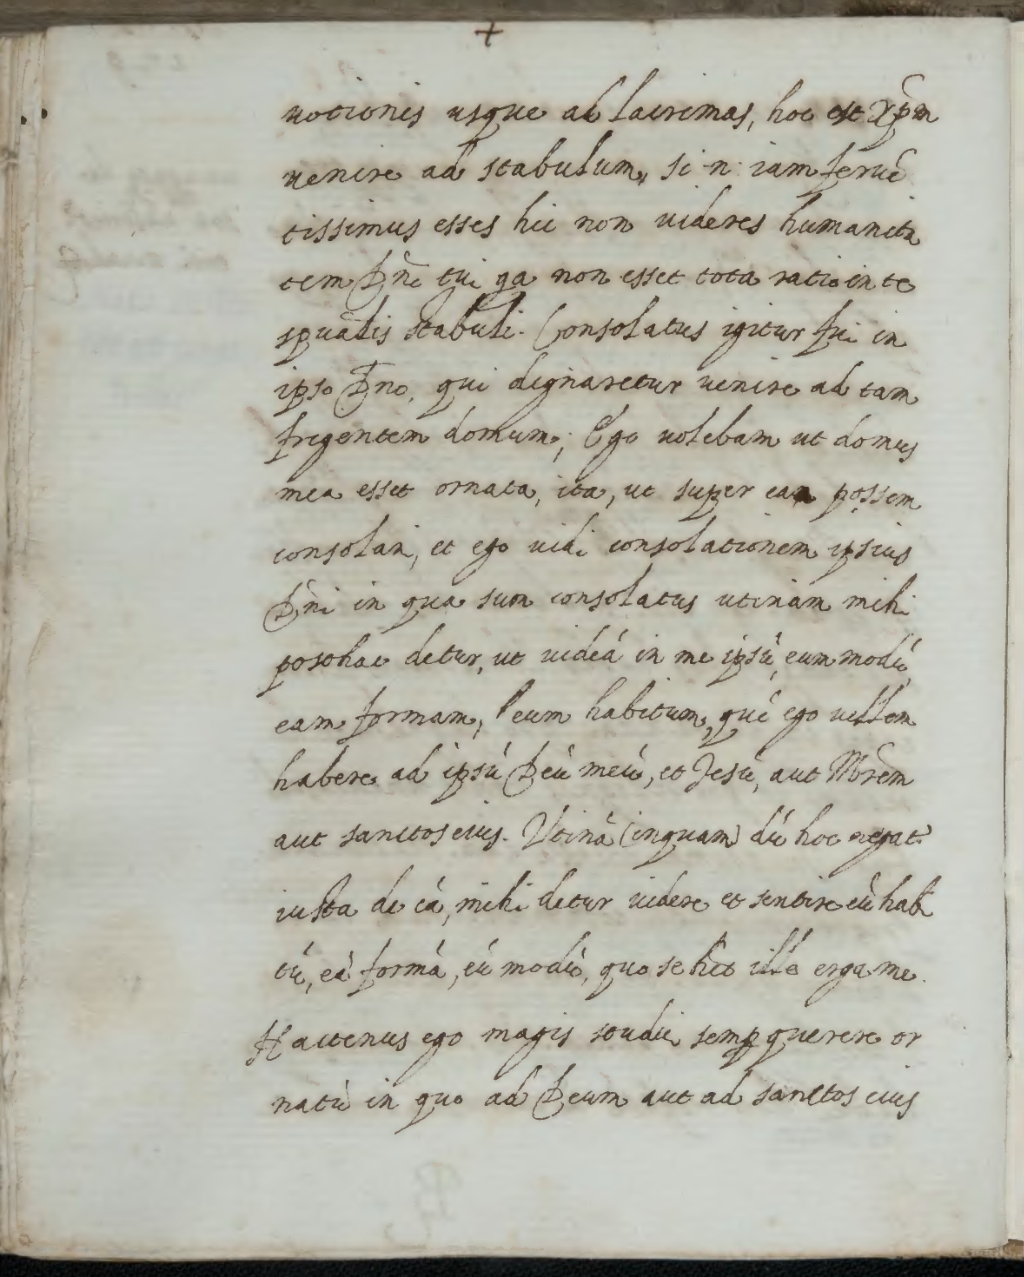 +
uotionis usque ad lacrimas, hoc est Xp̄m
uenire ad stabulum, si n: iam feruē
tissimus esses hic non uideres humanita
tem Dn̄i tui qa non esset tota ratio in te
spūalis stabuli. Consolatus igitur fui in
ipso Dno, qui dignaretur uenire ad tam
frigentem domum; Ego uolebam ut domus
mea esset ornata, ita, ut super ea possem
consolari, et ego uidi consolationem ipsius
Dn̄i in qua sum consolatus utinam mihi
posthac detur, ut uideā in me ipsū, eum modū,
eam formam, l eum habitum, quē ego uellem
habere ad ipsū Deū meū, et Jesū, aut Mr̄em
aut sanctos eius. Utinā (inquam) dū hoc negat
iusta de cā, mihi detur uidere et sentire eū habi
tū, eā formā, eū modū, quo se het ille erga me.
Hactenus ego magis studui semp querere or
natū in quo ad Deum aut ad sanctos eius